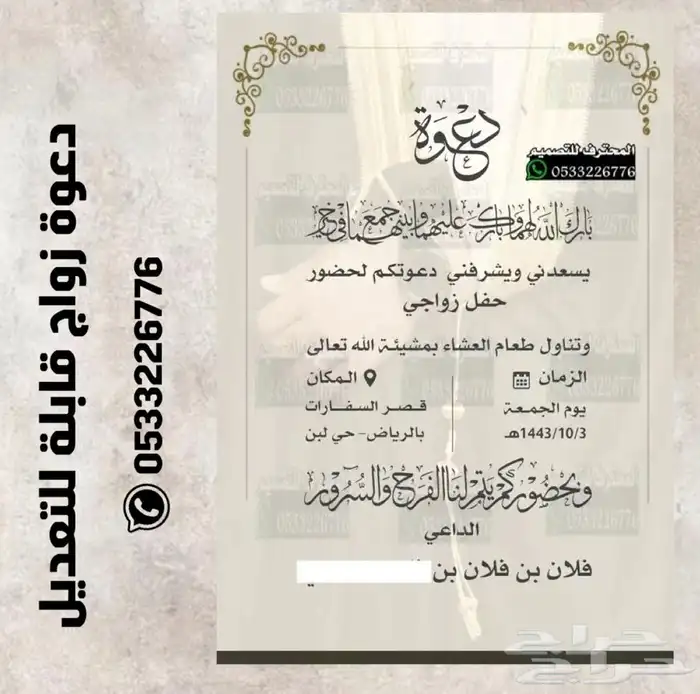 دعوة زواج قابلة للتعديل
0533226776
دعوة
المحترف للتصميم
0533226776
بارك الله لهما وبارك عليهما وجمع بينهما في خير
يسعدني ويشرفني دعوتكم لحضور
حفل زواجي
وتناول طعام العشاء بمشيئة الله تعالى
الزمان
المكان
يوم الجمعة
قصر السفارات
1443/10/3هـ
بالرياض- حي لبن
وبحضوركم يتم لنا الفرح والسرور
الداعي
فلان بن فلان بن
حراج
حراج